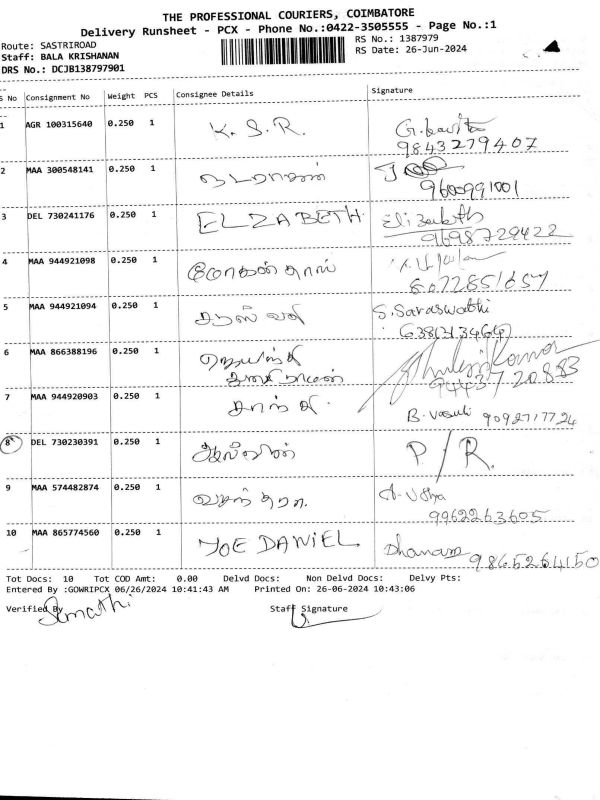 THE PROFESSIONAL COURIERS, COIMBATORE
Delivery Runsheet - PCX - Phone No.:0422-3505555 - Page No.:1
Route: SASTRIROAD RS No.: 1387979
Staff: BALA KRISHANAN RS Date: 26-Jun-2024
DRS No.: DCJB138797901
S No Consignment No Weight PCS Consignee Details Signature
1 AGR 100315640 0.250 1 K. S. R. G. kavita
9843279407
2 MAA 300548141 0.250 1 நடராஜன்
9600991001
3 DEL 730241176 0.250 1 ELZABETH Elizabeth
9698729422
4 MAA 944921098 0.250 1 மோகன் தாஸ்
5 MAA 944921094 0.250 1 சரஸ்வதி S. Saraswathi
6 MAA 866388196 0.250 1
9443720883
7 MAA 944920903 0.250 1 சாந்தி B. Vasuki 9092717724
8 DEL 730230391 0.250 1 P/R.
9 MAA 574482874 0.250 1 A. Usha
9962263605
10 MAA 865774560 0.250 1 JOE DANIEL Dhanam 9865264150
Tot Docs: 10 Tot COD Amt: 0.00 Delvd Docs: Non Delvd Docs: Delvy Pts:
Entered By :GOWRIPCX 06/26/2024 10:41:43 AM Printed On: 26-06-2024 10:43:06
Verified By Staff Signature